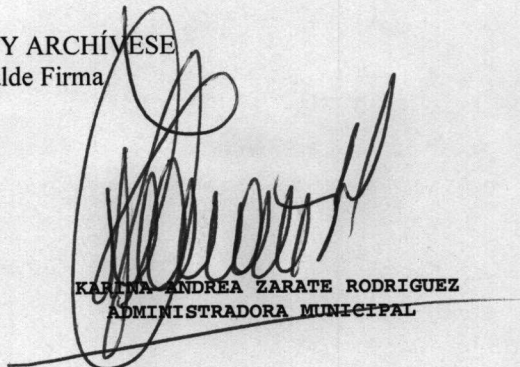 Y ARCHÍVESE
lde Firma
KARINA ANDREA ZARATE RODRIGUEZ
ADMINISTRADORA MUNICIPAL